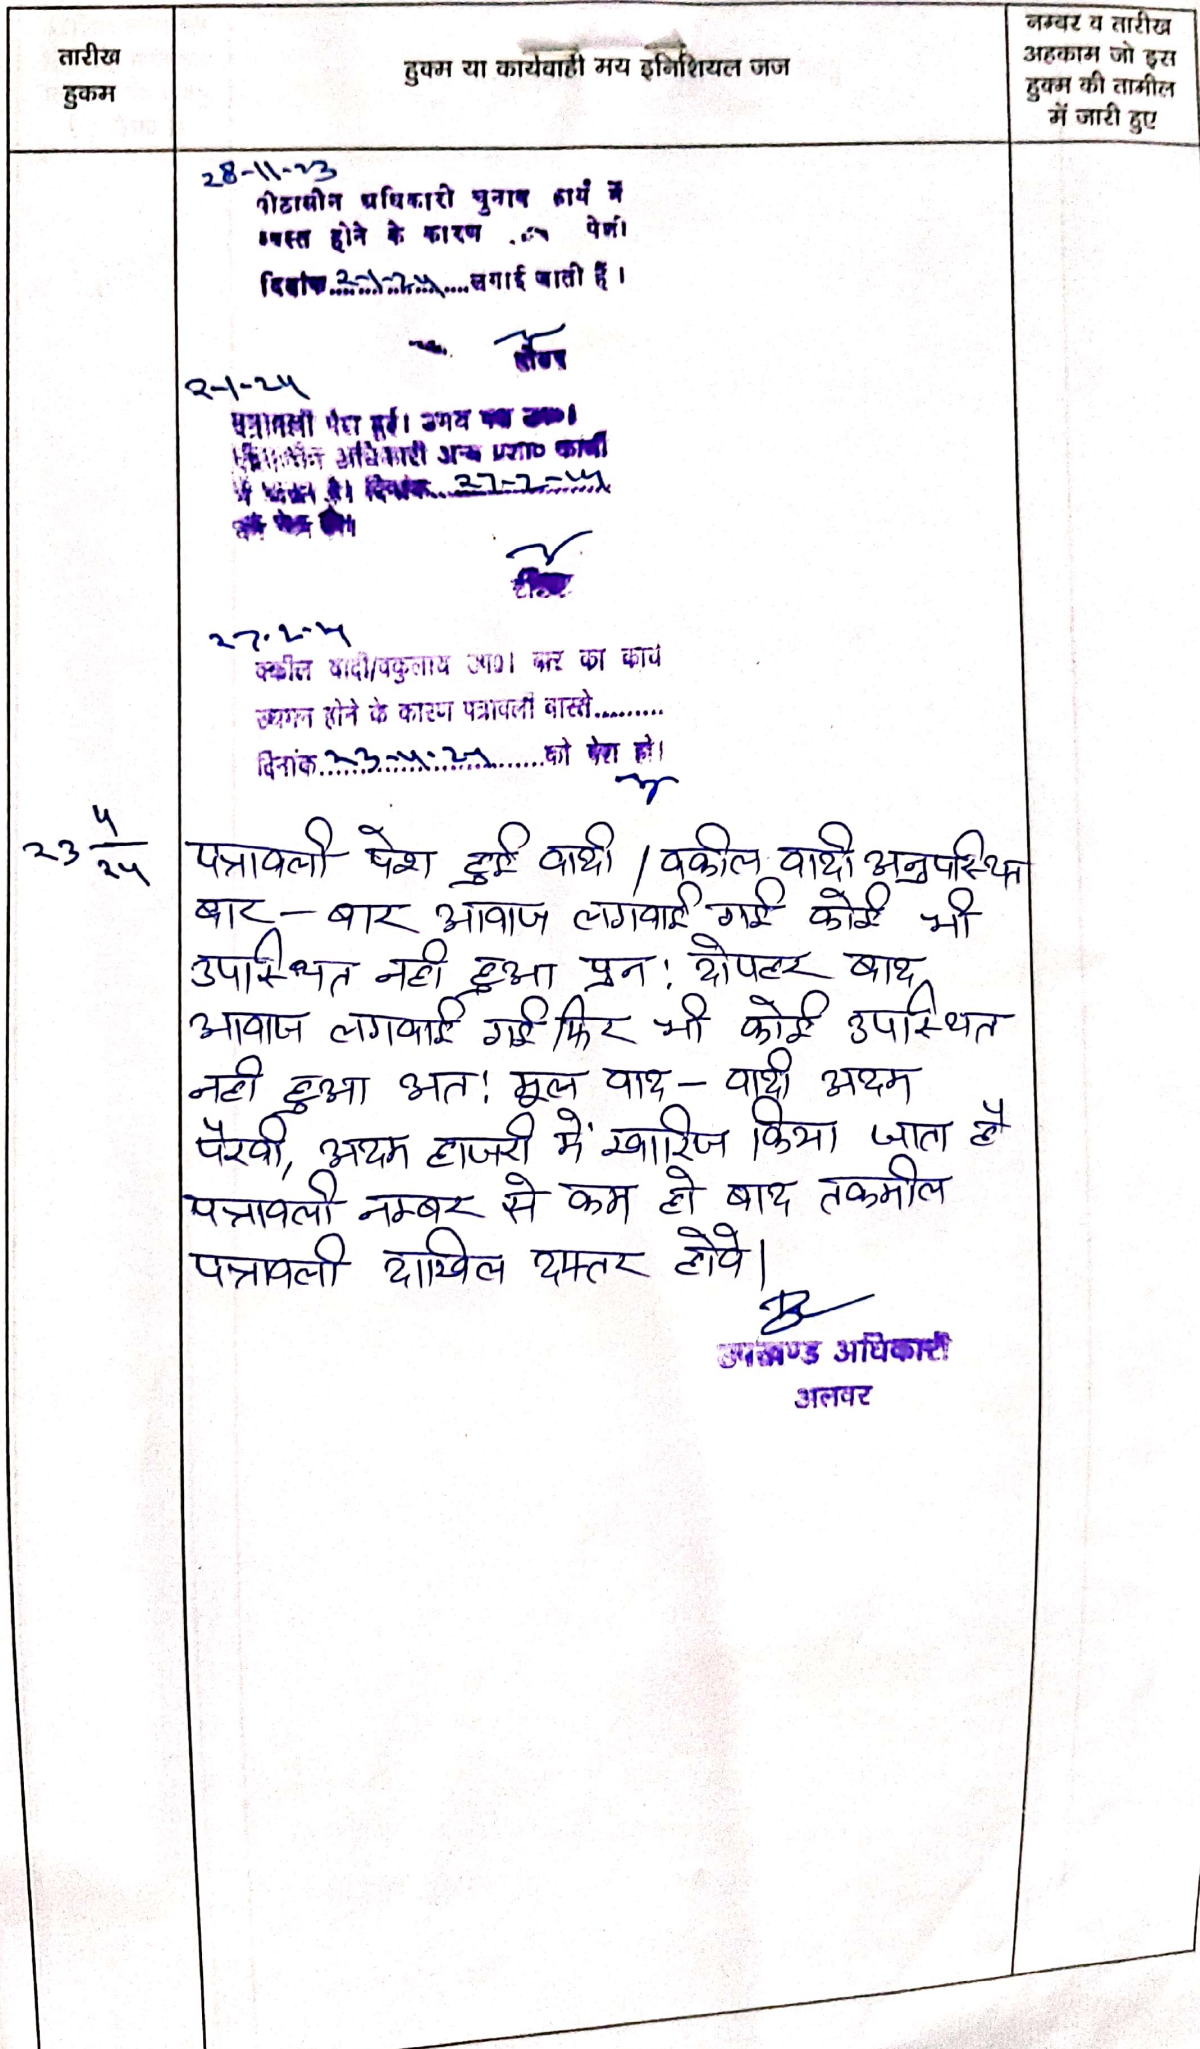 तारीख
हुकम
हुक्म या कार्यवाही मय इनिशियल जज
नम्बर व तारीख
अहकाम जो इस
हुक्म की तामील
में जारी हुए
28-11-23
पीठासीन अधिकारी चुनाव कार्य में
व्यस्त होने के कारण पेशी
दिनांक 2-1-24 लगाई जाती है।
रीडर
2-1-24
पत्रावली पेश हुई। उभय पक्ष उप०।
पीठासीन अधिकारी अन्य प्रशा० कार्यों
में व्यस्त है। दिनांक 27-2-24
को पेश हो।
रीडर
27-2-24
वकील वादी/वकुलाय उप०। बार का कार्य
स्थगन होने के कारण पत्रावली वास्ते.........
दिनांक 23-4-24 को पेश हो।
23 4/24
पत्रावली पेश हुई वादी / वकील वादी अनुपस्थित
बार - बार आवाज लगवाई गई कोई भी
उपस्थित नही हुआ पुन: दोपहर बाद
आवाज लगवाई गई फिर भी कोई उपस्थित
नही हुआ अत: मूल वाद - वादी अदम
पैरवी, अदम हाजरी में खारिज किया जाता है
पत्रावली नम्बर से कम हो बाद तकमील
पत्रावली दाखिल दफ्तर होवे।
उपखण्ड अधिकारी
अलवर